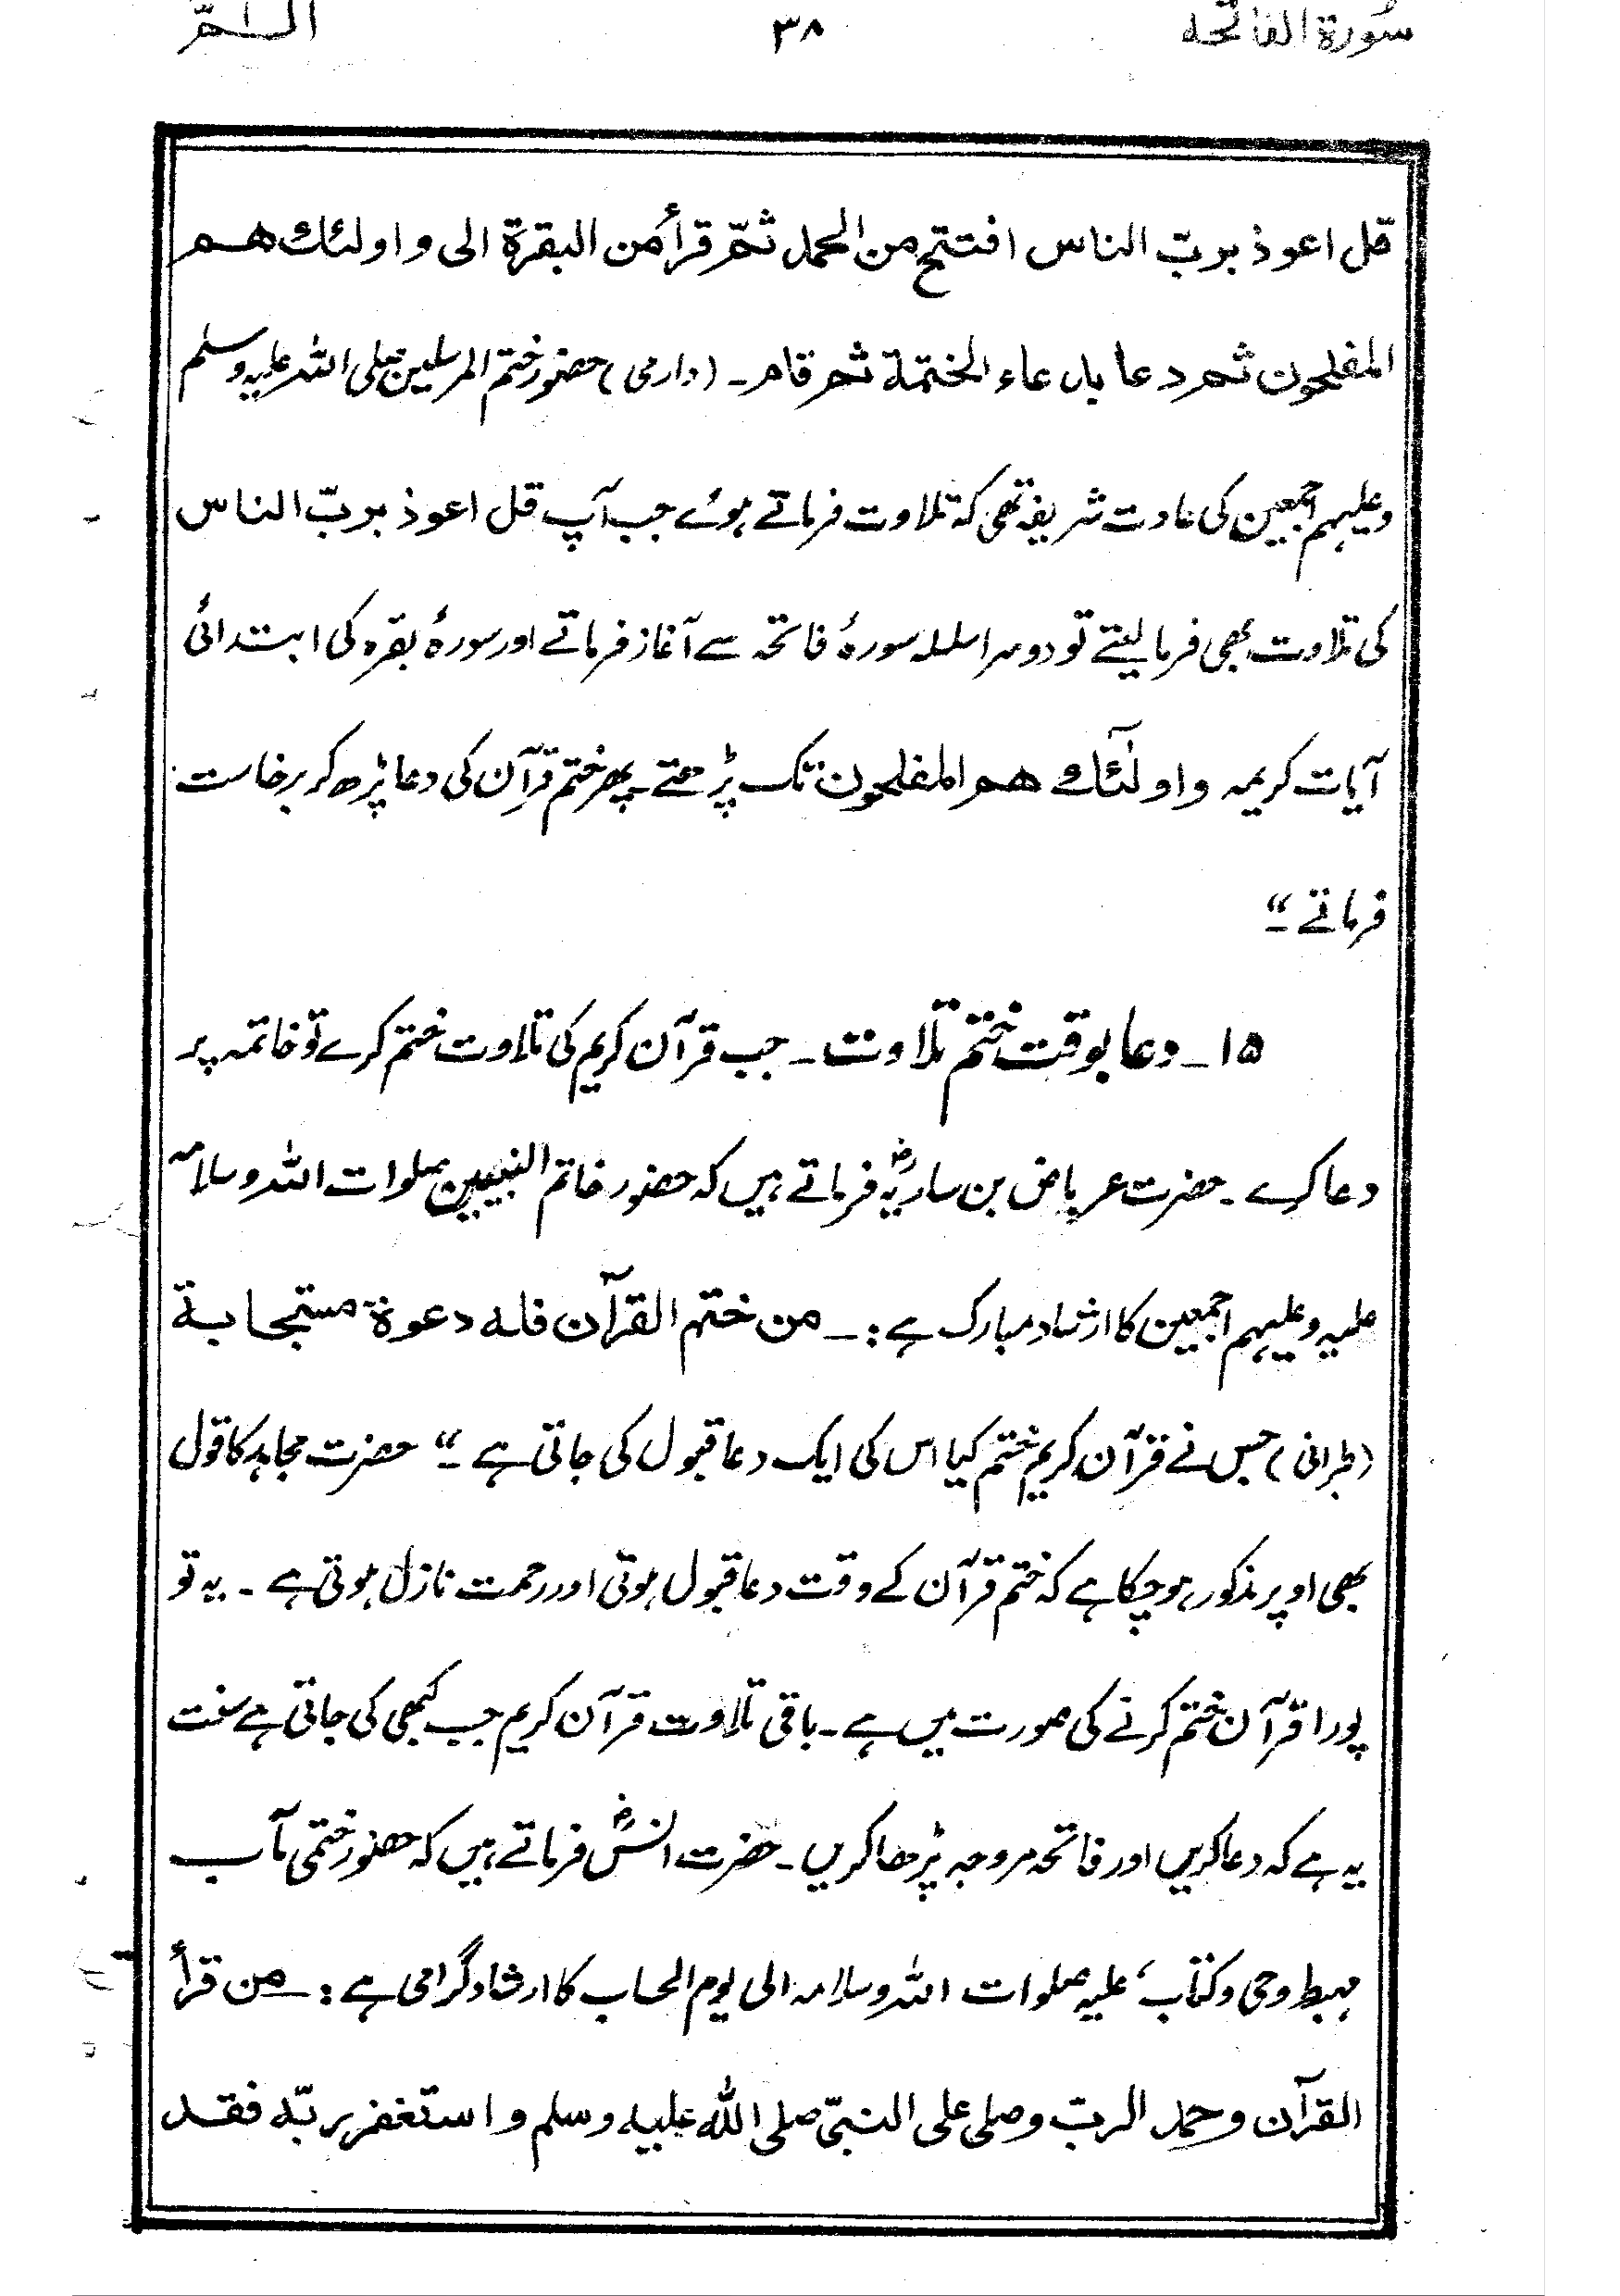 سُورة الفاتحہ ۳۸ الٓـــمّٓ
قل اعوذ بربّ الناس افتتح من الحمد ثمّ قرأ من البقرة الی و اولئك هم
المفلحون ثم دعا بدعاء الختمة ثم قام ۔ (دارمی) حضور ختم المرسلین صلی اللہ علیہ وسلم
وعلیہم اجمعین کی عادت شریفہ تھی کہ تلاوت فرماتے ہوئے جب آپ قل اعوذ بربّ الناس
کی تلاوت بھی فرمالیتے تو دوسرا سلسلہ سورۂ فاتحہ سے آغاز فرماتے اور سورۂ بقرہ کی ابتدائی
آیات کریمہ و اولٰٓئك هم المفلحون تک پڑھتے ۔ پھر ختم قرآن کی دعا پڑھ کر برخاست
فرماتے ۔“
۱۵ ۔ دعا بوقت ختم تلاوت ۔ جب قرآن کریم کی تلاوت ختم کرے تو خاتمہ پر
دعا کرے ۔ حضرت عرباض بن ساریہؓ فرماتے ہیں کہ حضور خاتم النبیین صلوات اللہ وسلامہ
علیہ وعلیہم اجمعین کا ارشاد مبارک ہے :۔ من ختم القرآن فله دعوة مستجابة
(طبرانی) جس نے قرآن کریم ختم کیا اس کی ایک دعا قبول کی جاتی ہے ۔“ حضرت مجاہد کا قول
بھی اوپر مذکور ہوچکا ہے کہ ختم قرآن کے وقت دعا قبول ہوتی اور رحمت نازل ہوتی ہے ۔ یہ تو
پورا قرآن ختم کرنے کی صورت میں ہے ۔ باقی تلاوت قرآن کریم جب کبھی کی جاتی ہے سنت
یہ ہے کہ دعا کریں اور فاتحہ مروجہ پڑھا کریں ۔ حضرت انسؓ فرماتے ہیں کہ حضور ختمی مآب
مہبط وحی وکتاب، علیہ صلوات اللہ وسلامہ الی یوم الحساب کا ارشاد گرامی ہے :۔ من قرأ
القرآن وحمد الربّ وصلی علی النبیّ صلی الله علیه وسلم و استغفر ربّه فقد